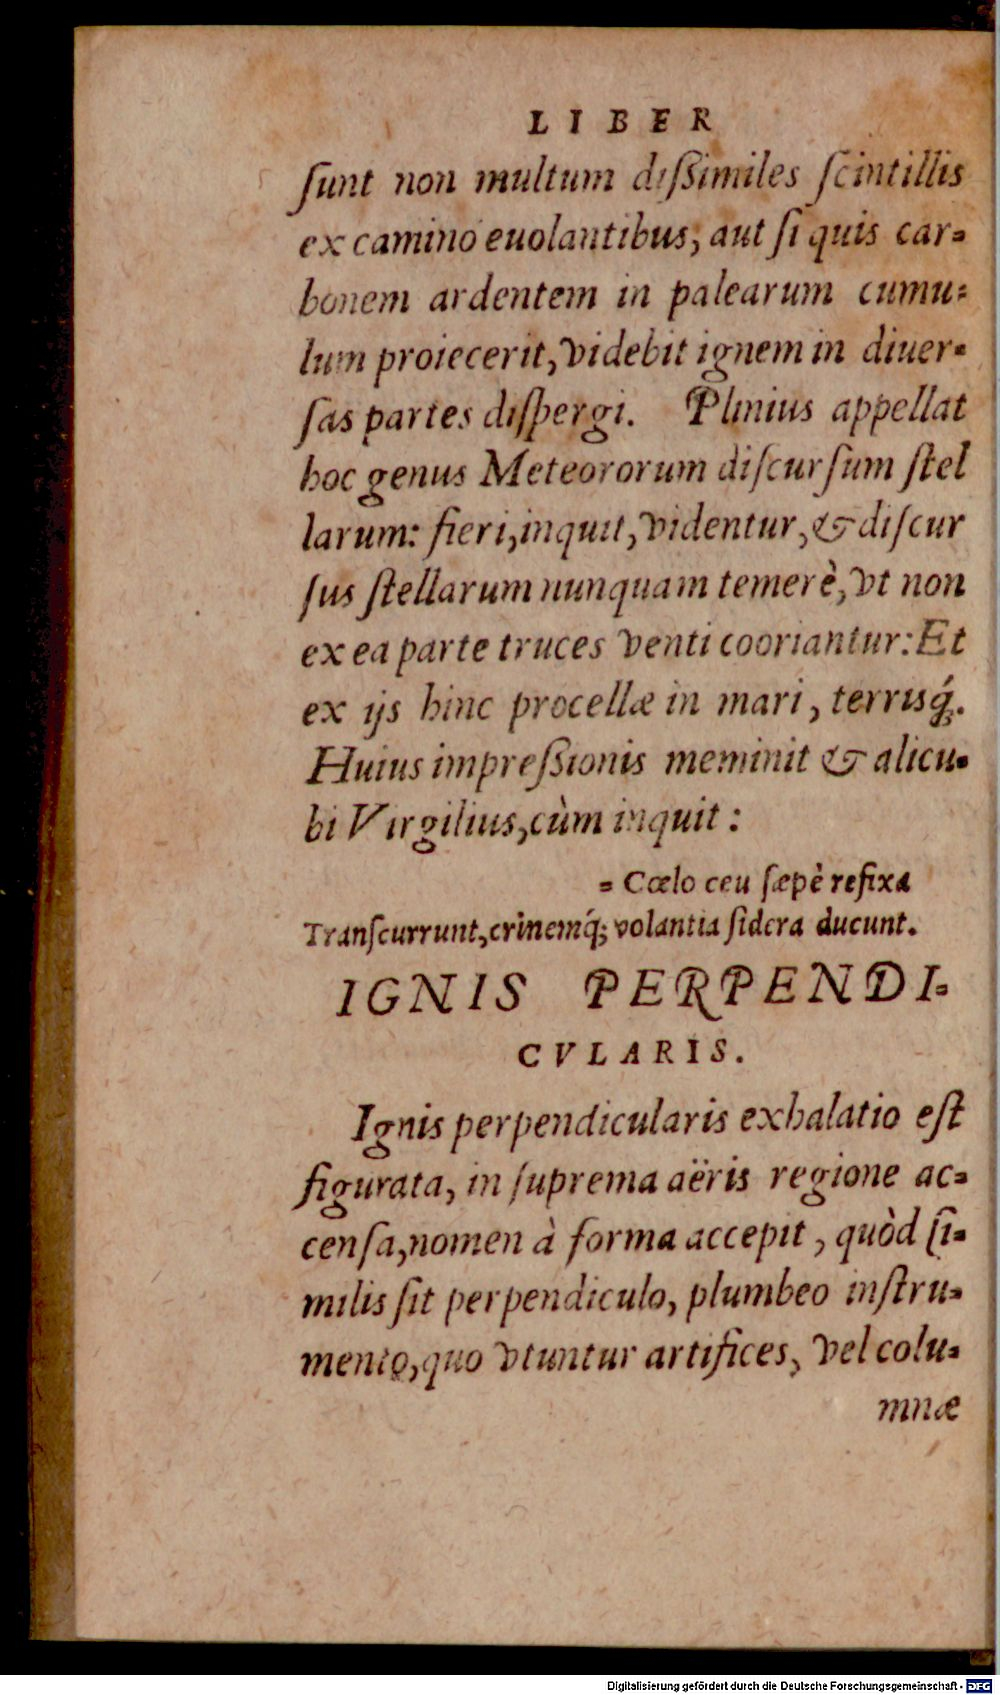 LIBER
ſunt non multum diſsimiles ſcintillis
ex camino euolantibus, aut ſi quis car-
bonem ardentem in palearum cumu-
lum proiecerit, videbit ignem in diuer-
ſas partes diſpergi. Plinius appellat
hoc genus Meteororum diſcurſum ſtel
larum: fieri, inquit, videntur, & diſcur
ſus ſtellarum nunquam temerè, vt non
ex ea parte truces venti cooriantur: Et
ex ijs hinc procellæ in mari, terrisq́;.
Huius impreſsionis meminit & alicu-
bi Virgilius, cùm inquit:
= Cœlo ceu ſæpè refixa
Tranſcurrunt, crinemq́; volantia ſidera ducunt.
IGNIS PERPENDI-
CVLARIS.
Ignis perpendicularis exhalatio eſt
figurata, in ſuprema aëris regione ac-
cenſa, nomen à forma accepit, quòd ſi-
milis ſit perpendiculo, plumbeo inſtru-
mento, quo vtuntur artifices, vel colu-
mnæ
Digitalisierung gefördert durch die Deutsche Forschungsgemeinschaft - DFG